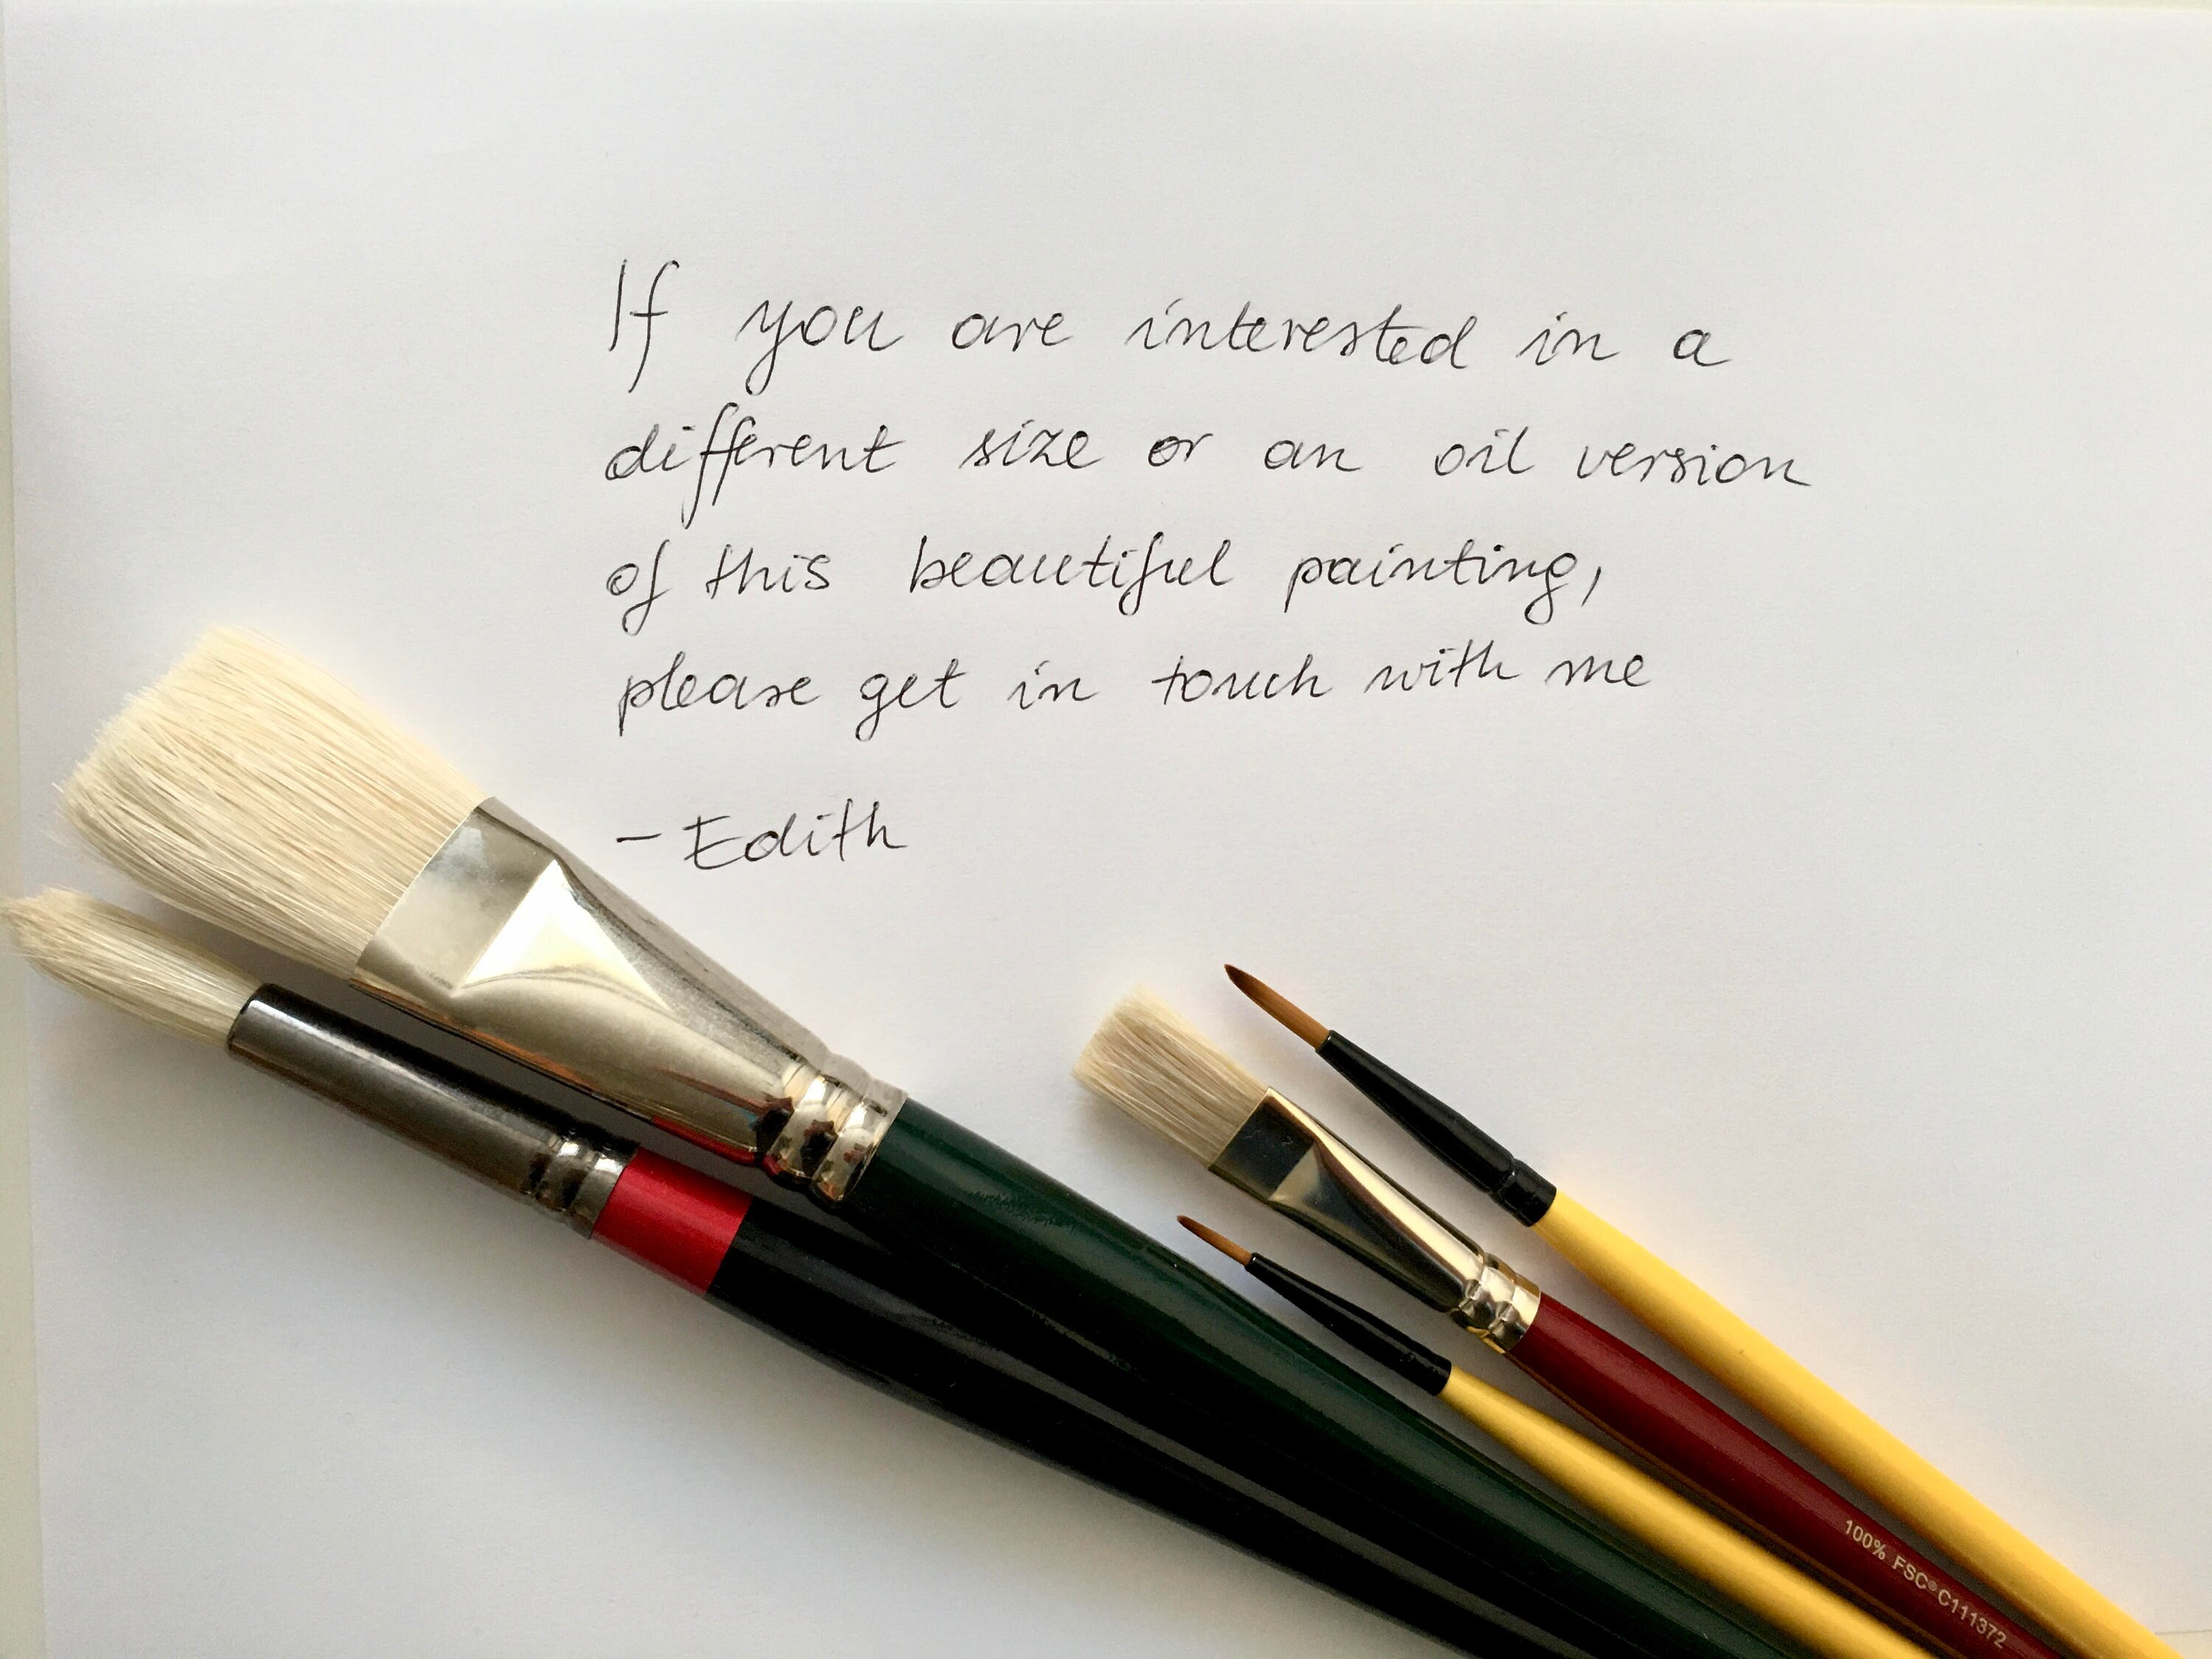 If you are interested in a
different size or an oil version
of this beautiful painting,
please get in touch with me
- Edith
100% FSC® C111372